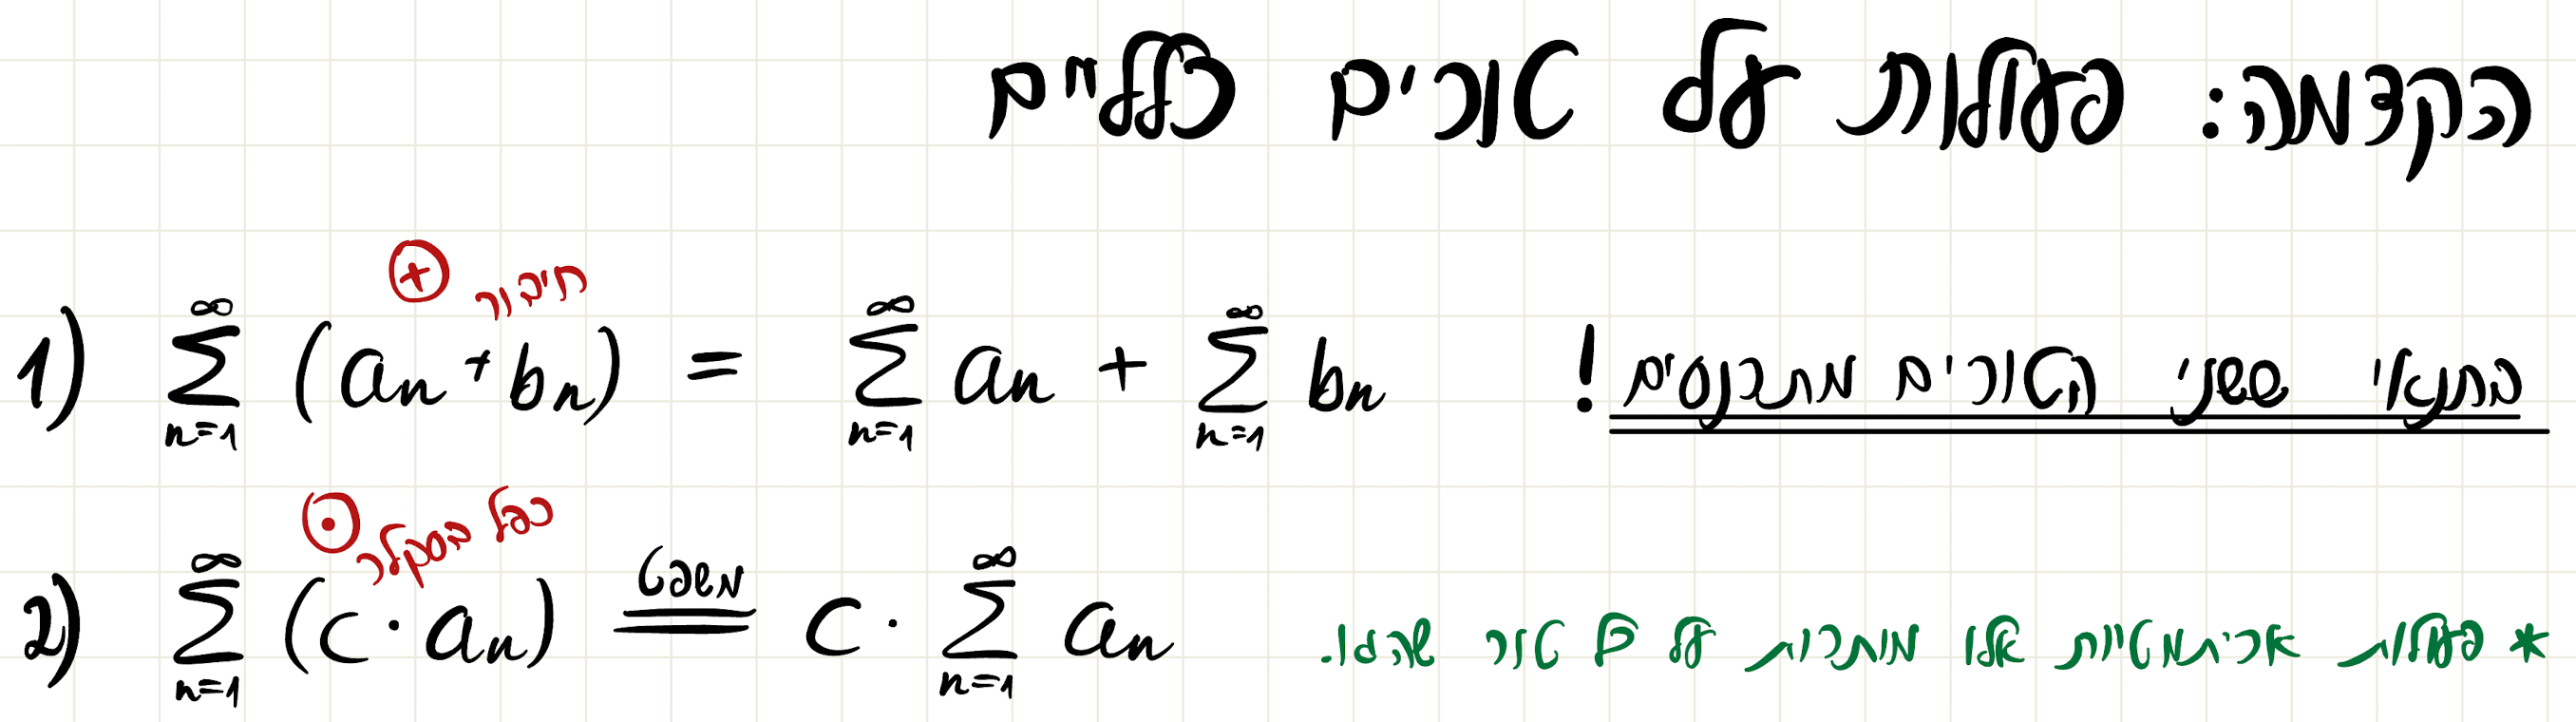 הקדמה: פעולות על טורים כלליים
⊕ חיבור
1) \sum_{n=1}^{\infty} (a_n + b_n) = \sum_{n=1}^{\infty} a_n + \sum_{n=1}^{\infty} b_n בתנאי ששני הטורים מתכנסים!
⊙ כפל בסקלר
2) \sum_{n=1}^{\infty} (c \cdot a_n) \overset{משפט}{=} c \cdot \sum_{n=1}^{\infty} a_n * פעולות אריתמטיות אלו מותרות על כל טור שהגו.